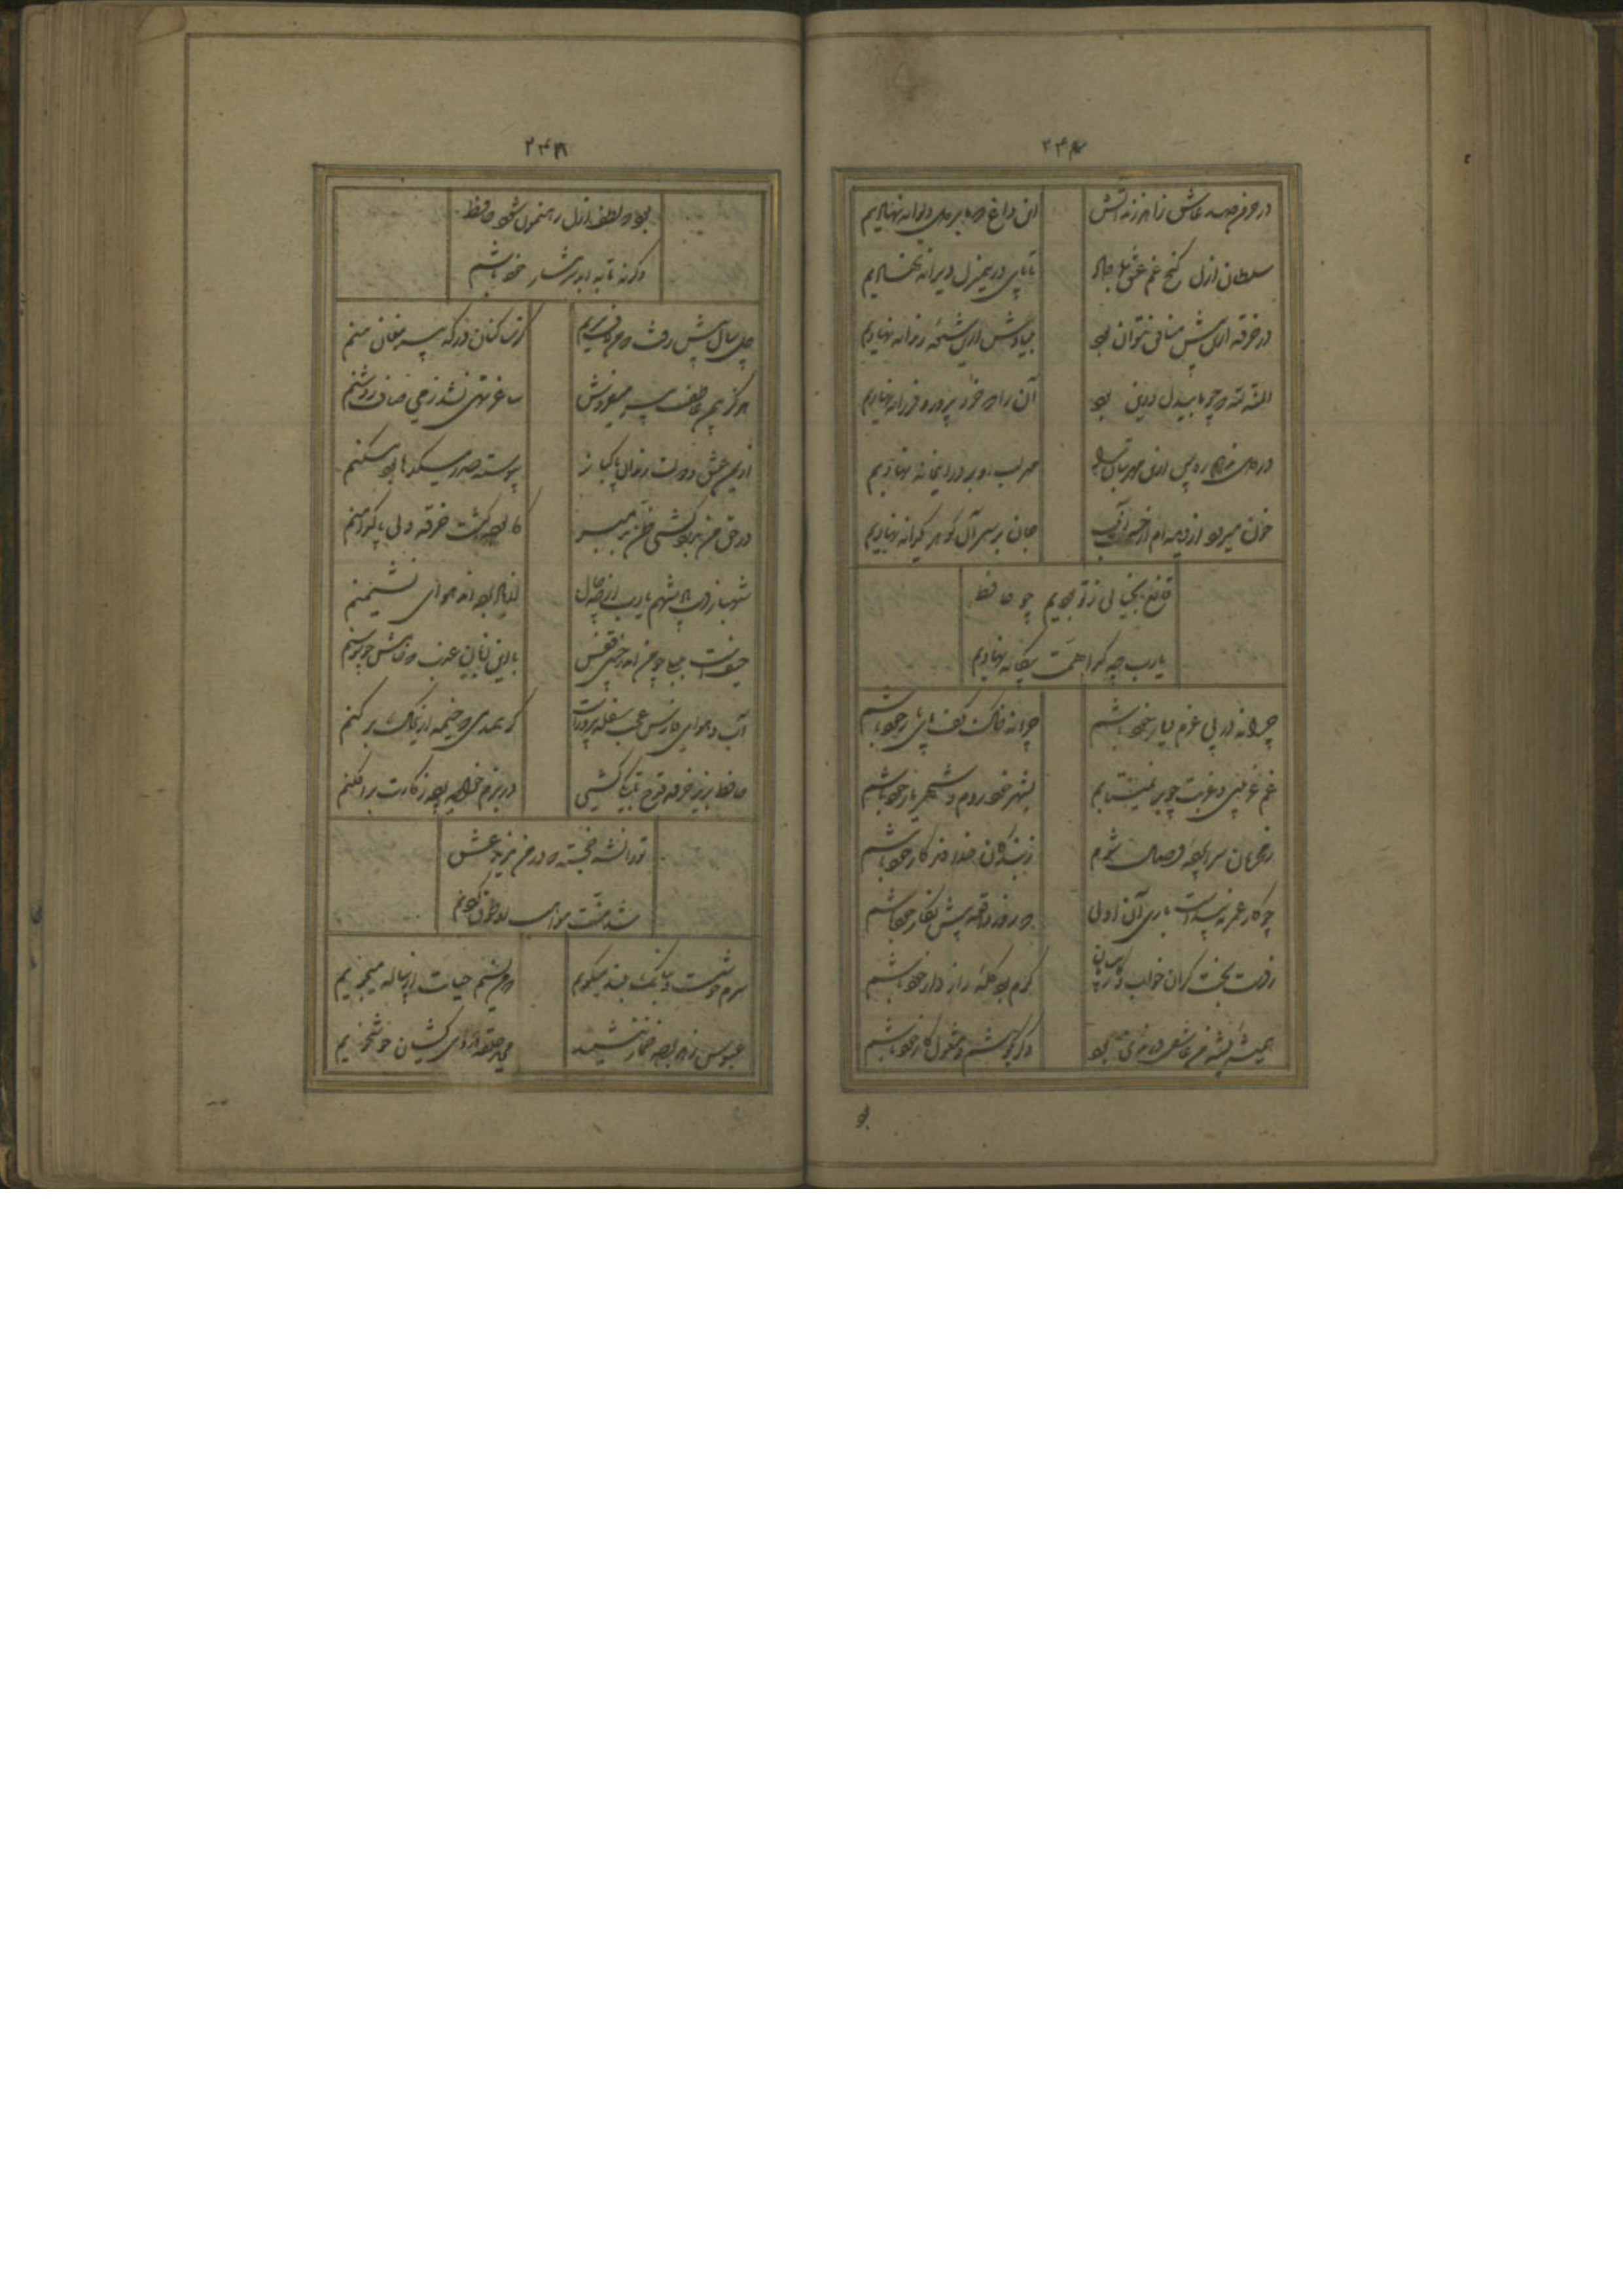 در خرمن صد عاشق زاهد زند آتش این داغ که ما بر دل دیوانه نهادیم
سلطان ازل گنج غم عشق بما داد تا پای درین منزل ویرانه نهادیم
در خرقه ازین بیش منافق نتوان بود بنیادش ازین شیوه رندانه نهادیم
المنة لله که چو ما بیدل و دین بود آن را که خرد پرور و فرزانه نهادیم
در دل ندهم ره پس ازین مهر بتان را مهر لب او بر در این خانه نهادیم
خون میرود از دیده ام از جان بر سر آن گوهر یکدانه نهادیم
قانع بخیالی ز تو بودیم چو حافظ
یارب چه گدا همت بیگانه نهادیم
چرا نه در پی عزم دیار خود باشم چرا نه خاک کف پای یار خود باشم
غم غریبی و غربت چو بر نمیتابم بشهر خود روم و شهریار خود باشم
ز محرمان سراپرده وصال شوم ز بندگان خداوندگار خود باشم
چو کار عمر نه پیداست باری آن اولی که روز واقعه پیش نگار خود باشم
ز دست بخت گران خواب و کار بی سامان گرم بود گله راز دار خود باشم
همیشه پیشه من عاشقی و رندی بود دگر بکوشم و مشغول کار خود باشم
بو
بود که لطف ازل رهنمون شود حافظ
وگرنه تا به ابد شرمسار خود باشم
چل سال پیش رفت که من لاف میزنم کز بندگان درگه پیر مغان منم
هرگز بیمن عاطفت پیر میفروش ساغر تهی نشد ز می صاف روشنم
از یمن عشق و دولت رندان پاکباز پیوسته صدر میکدها بود مسکنم
در حق من بدردکشی ظن بد مبر کالوده گشت خرقه ولی پاکدامنم
شهباز دست پادشهم یارب از چه حال از یاد برده اند هوای نشیمنم
حیفست بلبلی چو من اندر چنین قفس با این لسان عذب که خامش چو سوسنم
آب و هوای فارس عجب سفله پرورست کو همدمی که خیمه ازین خاک برکنم
حافظ بزیر خرقه قدح تا بکی کشی در بزم خواجه پرده ز کارت برافکنم
تورانشه خجسته که در من یزید عشق
شد منت مواهب او طوق گردنم
سرم خوشست و ببانگ بلند میگویم که من نسیم حیات از پیاله میجویم
عبوس زهد بوجه خمار ننشیند مرید حلقه دردی کشان خوشخویم